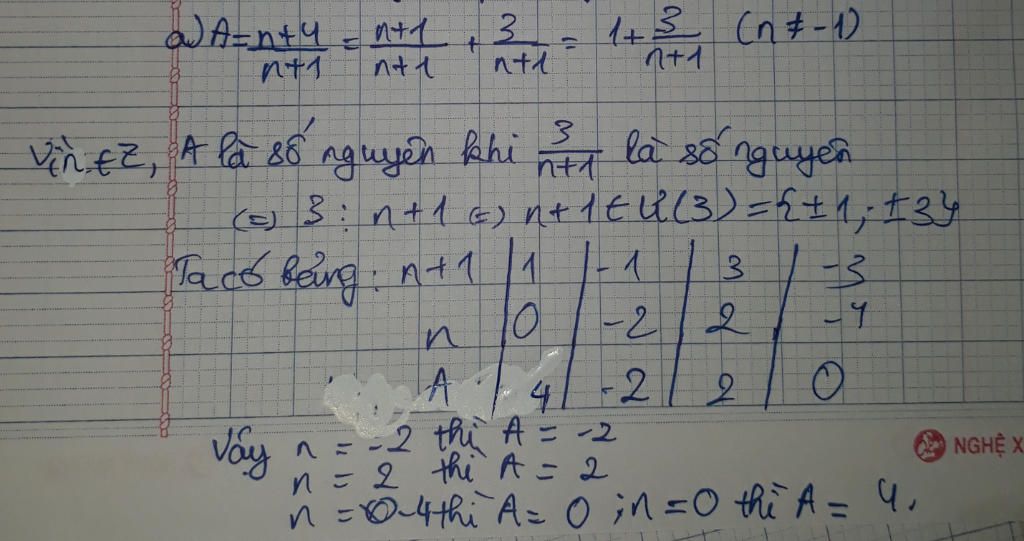 a) A = n+4/n+1 = n+1/n+1 + 3/n+1 = 1 + 3/n+1 (n ≠ -1)
Vì n ∈ Z, A là số nguyên khi 3/n+1 là số nguyên
(=) 3 : n+1 (=) n+1 ∈ Ư(3) = {±1; ±3}
Ta có bảng: n+1 | 1 | -1 | 3 | -3
n | 0 | -2 | 2 | -4
A | 4 | -2 | 2 | 0
Vậy n = -2 thì A = -2
NGHỆ X
n = 2 thì A = 2
n = -4 thì A = 0 ; n = 0 thì A = 4.